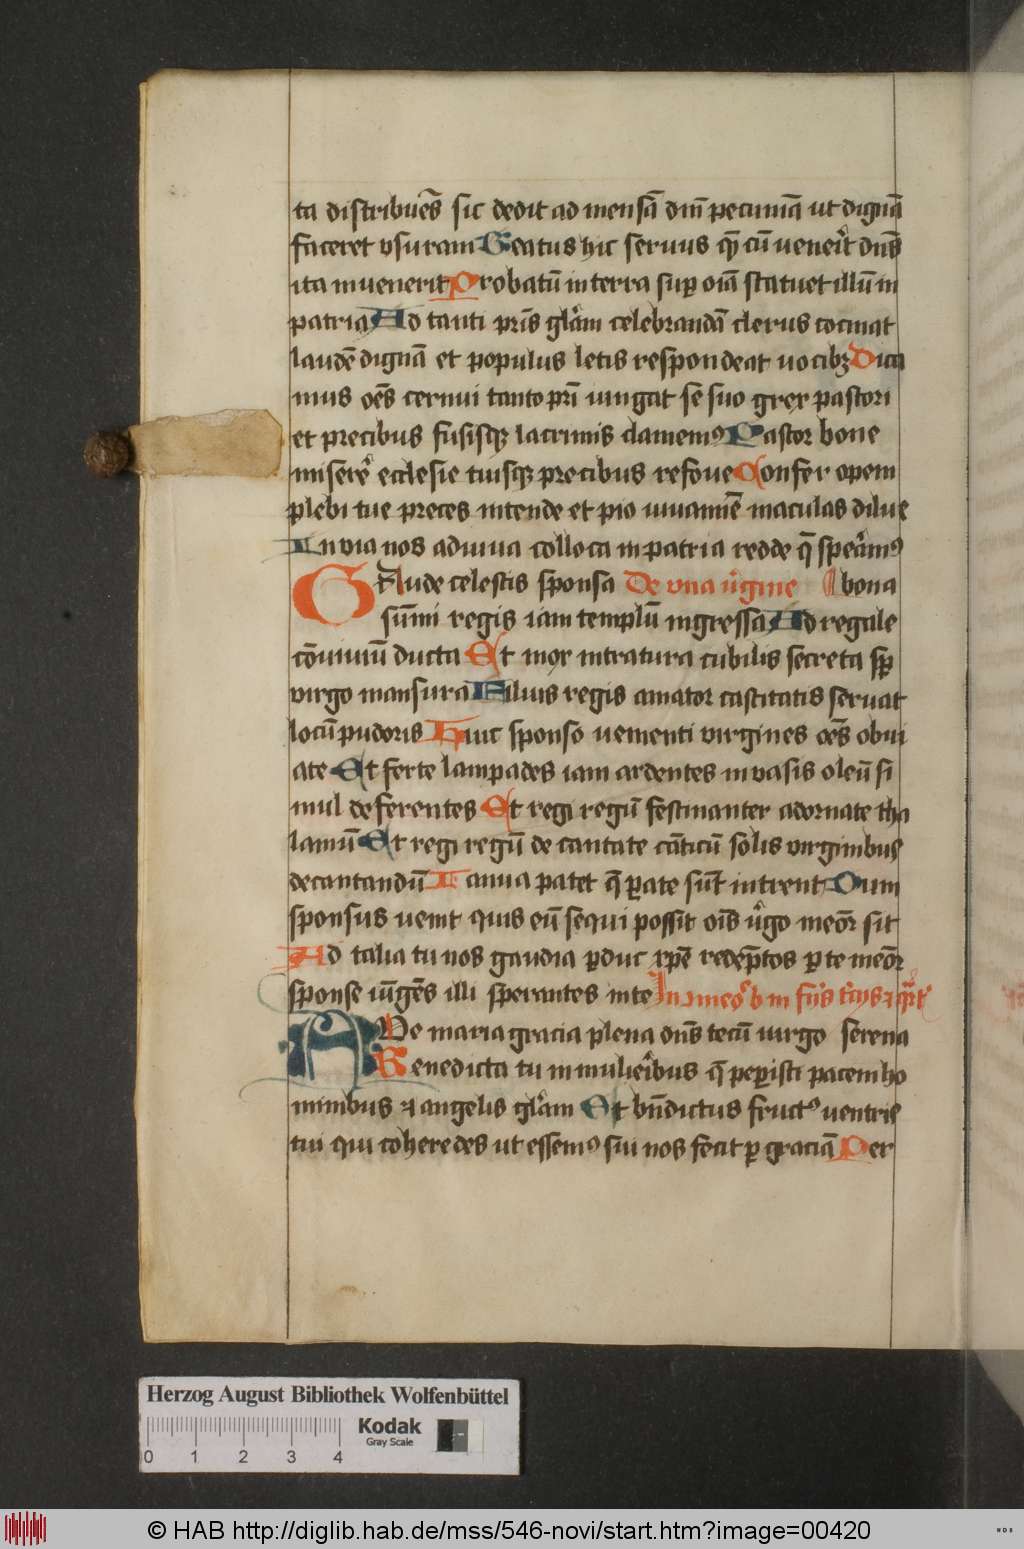 ta distribuēs sic dedit ad mensā dn̄i pecuniā ut dignā
faceret vsuram Beatus hic seruus quē cū uenerit dn̄s
ita inuenerit Probatū in terra sup oīa statuet illū in
patria Ad tanti pr̄is glām celebrandā clerus cōcinat
laudē dignā et populus letis respondeat uocibꝫ Dica
mus oēs cernui tanto pr̄i iungat se suo grex pastori
et precibus fusisqꝫ lacrimis clamemꝰ Pastor bone
miserē ecclesie tuisqꝫ precibus refoue Confer opem
plebi tue preces intende et pio iuuamīe maculas dilue
In via nos adiuua colloca in patria redde q̄ speramꝰ
GAude celestis sponsa De vna uirgine bona
sūmi regis iam templū ingressa Ad regale
cōuiuiū ducta Et mox intratura cubilis secreta sp̄
virgo mansura Filius regis amator castitatis seruat
locū pudoris Huic sponso uenienti virgines oēs obui
ate Et ferte lampades iam ardentes in vasis oleū si
mul deferentes Et regi regū festinanter adornate tha
lamū Et regi regū decantate cāticū solis virginibus
decantandū Ianua patet q̄ ꝑate sūt intrent Dum
sponsus uenit quis eū sequi possit oīs uirgo meōr sit
Ad talia tu nos gaudia ꝑduc xp̄e redēptos ꝑ te meōr
sponse iūgēs illi sperantes in te
AVe maria gracia plena dn̄s tecū uirgo serena
Benedicta tu in mulieribus q̄ peꝑisti pacem ho
minibus ⁊ angelis glām Et bn̄dictus fructꝰ uentris
tui qui coheredes ut essemꝰ sui nos fecit ꝑ graciā Per
Herzog August Bibliothek Wolfenbüttel
Kodak
Gray Scale
0 1 2 3 4
© HAB http://diglib.hab.de/mss/546-novi/start.htm?image=00420